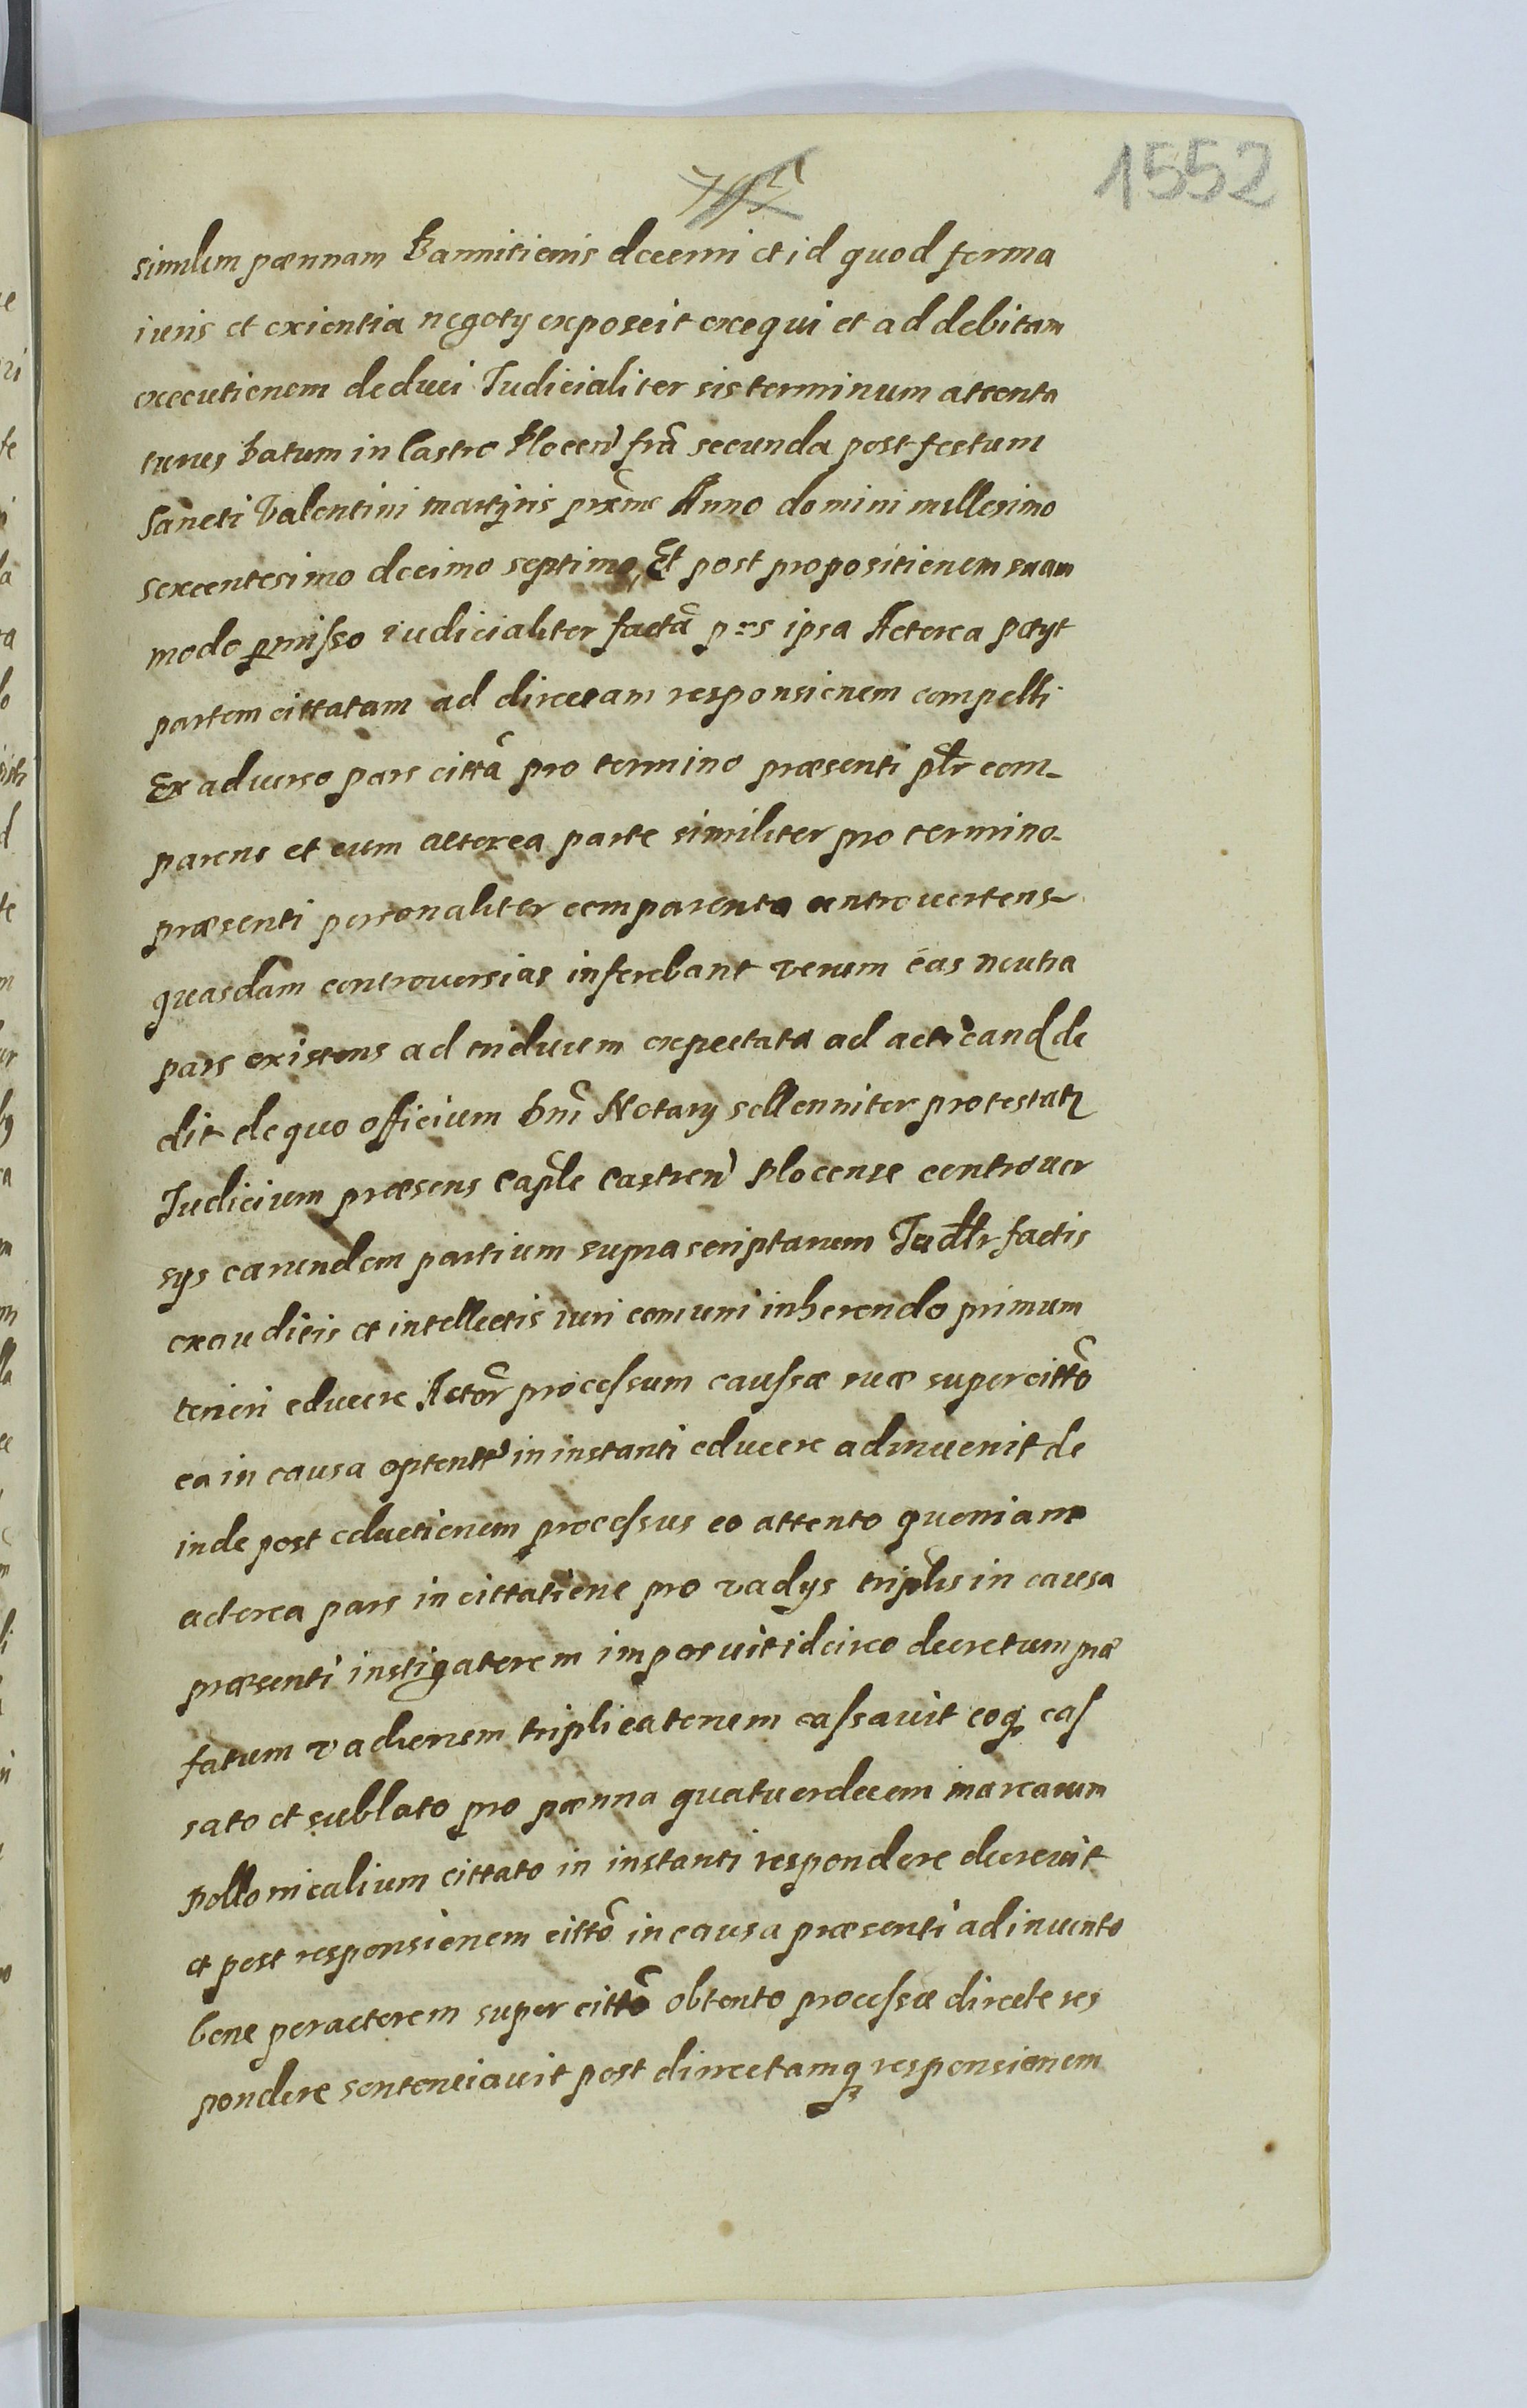 1552
simulem poennam Bannitionis decerni et id quod forma
iuris et exientia negoty exposcit exequi et ad debitam
executionem deduci Iudicialiter sis terminum attenta
turus Datum in Castro Plocen̄ fr̄a secunda post festum
Sancti Valentini martyris prox̄me Anno domini millesimo
sexcentesimo decimo septimo, Et post propositionem suam
modo p̄misso iudicialiter factā p̄rs ipsa Actorea petyt
partem cittatam ad directam responsionem compelli
Ex aduerso pars cittā pro termino praesenti pl̄r com-
parens et cum actorea parte similiter pro termino-
praesenti personaliter comparente controuertens
quasdam controuersias inferebant verum eas neutra
pars existens ad triduum expectata ad acticand de
dit de quo officium Dn̄i Notary sollenniter protestatz
Iudicium praesens Cap̄le Castren̄ Plocense controuer
sys earundem partium suprascriptarum Iudlr factis
exauditis et intellectis iuri comuni inherendo primum
teneri educere Actor̄ processum caussae suae super cittō
ea in causa optentt in instanti educere adinuenit de
inde post eductionem processus eo attento quoniam
actorea pars in cittatione pro vadys triplis in causa
praesenti instigatorem imposuit idcirco decretum prae
fatum vadiorum triplicatorum cassauit eoq̨ cas
sato et sublato pro poenna quatuordecem marcarum
Pollonicalium cittato in instanti respondere decreuit
et post responsionem cittō in causa praesenti adinuento
bene per actorem super cittō obtento processu directe res
pondere sentenciauit post directamq̨ responsionem